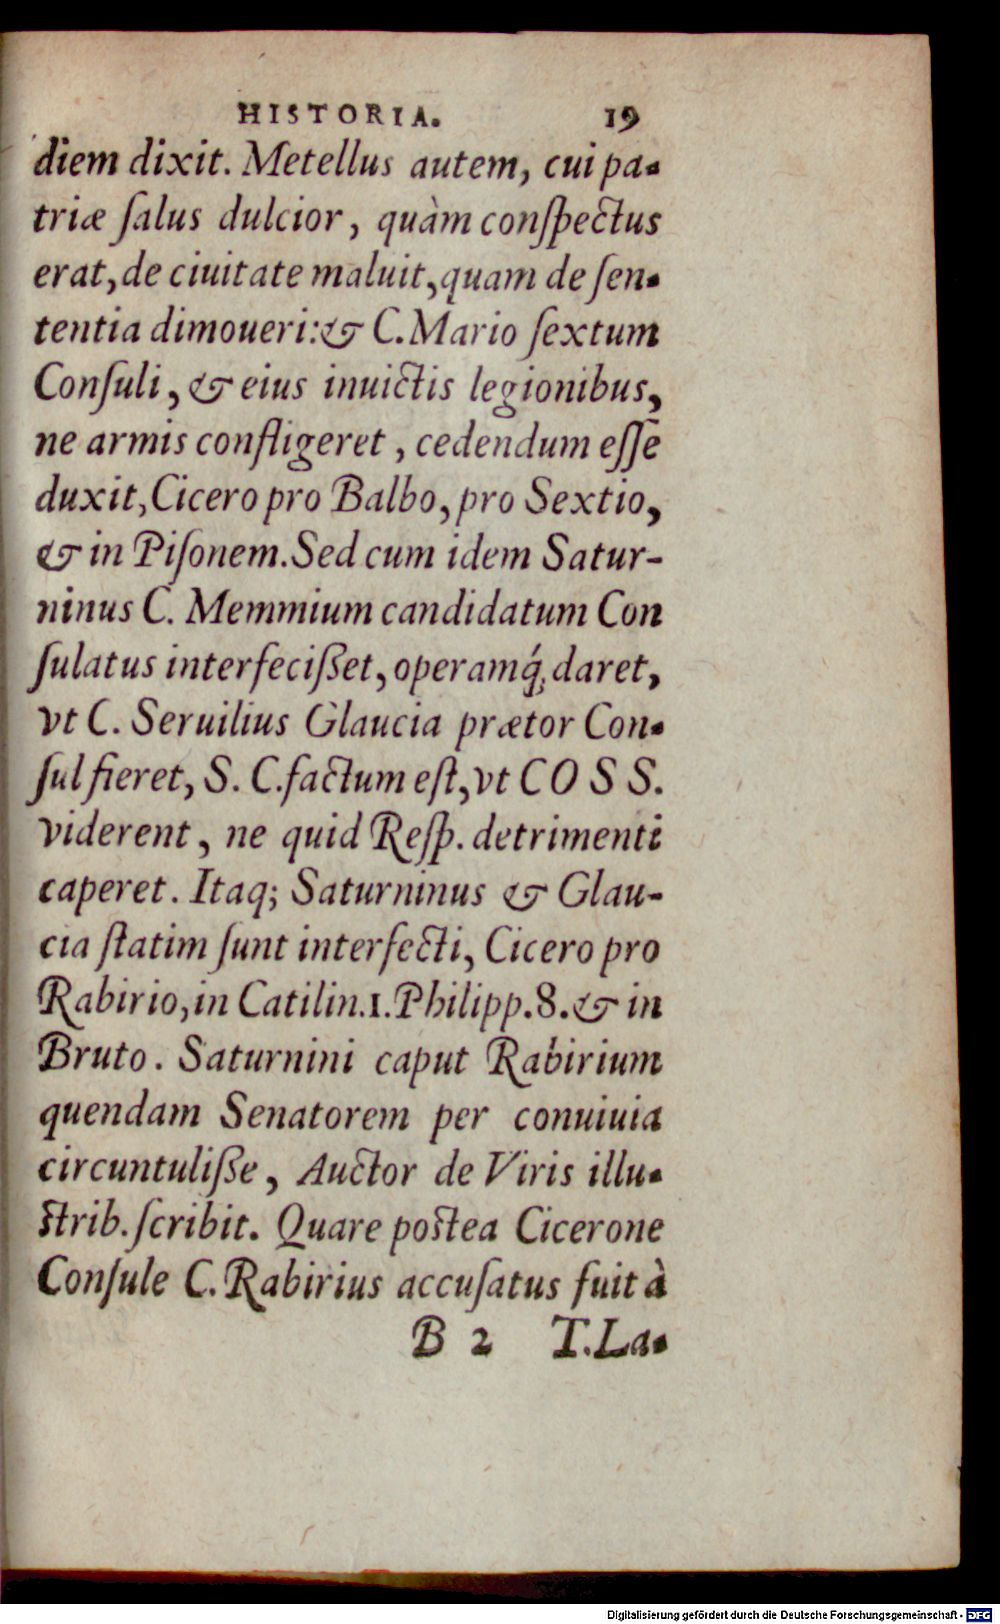 HISTORIA. 19
diem dixit. Metellus autem, cui pa-
triæ ſalus dulcior, quàm conſpectus
erat, de ciuitate maluit, quam de ſen-
tentia dimoueri: & C. Mario ſextum
Conſuli, & eius inuictis legionibus,
ne armis confligeret, cedendum eſſe
duxit, Cicero pro Balbo, pro Sextio,
& in Piſonem. Sed cum idem Satur-
ninus C. Memmium candidatum Con
ſulatus interfecißet, operamq́; daret,
vt C. Seruilius Glaucia prætor Con-
ſul fieret, S. C. factum eſt, vt COSS.
viderent, ne quid Reſp. detrimenti
caperet. Itaq; Saturninus & Glau-
cia ſtatim ſunt interfecti, Cicero pro
Rabirio, in Catilin. 1. Philipp. 8. & in
Bruto. Saturnini caput Rabirium
quendam Senatorem per conuiuia
circuntuliße, Auctor de Viris illu-
ſtrib. ſcribit. Quare poſtea Cicerone
Conſule C. Rabirius accuſatus fuit à
B 2 T. La-
Digitalisierung gefördert durch die Deutsche Forschungsgemeinschaft - DFG